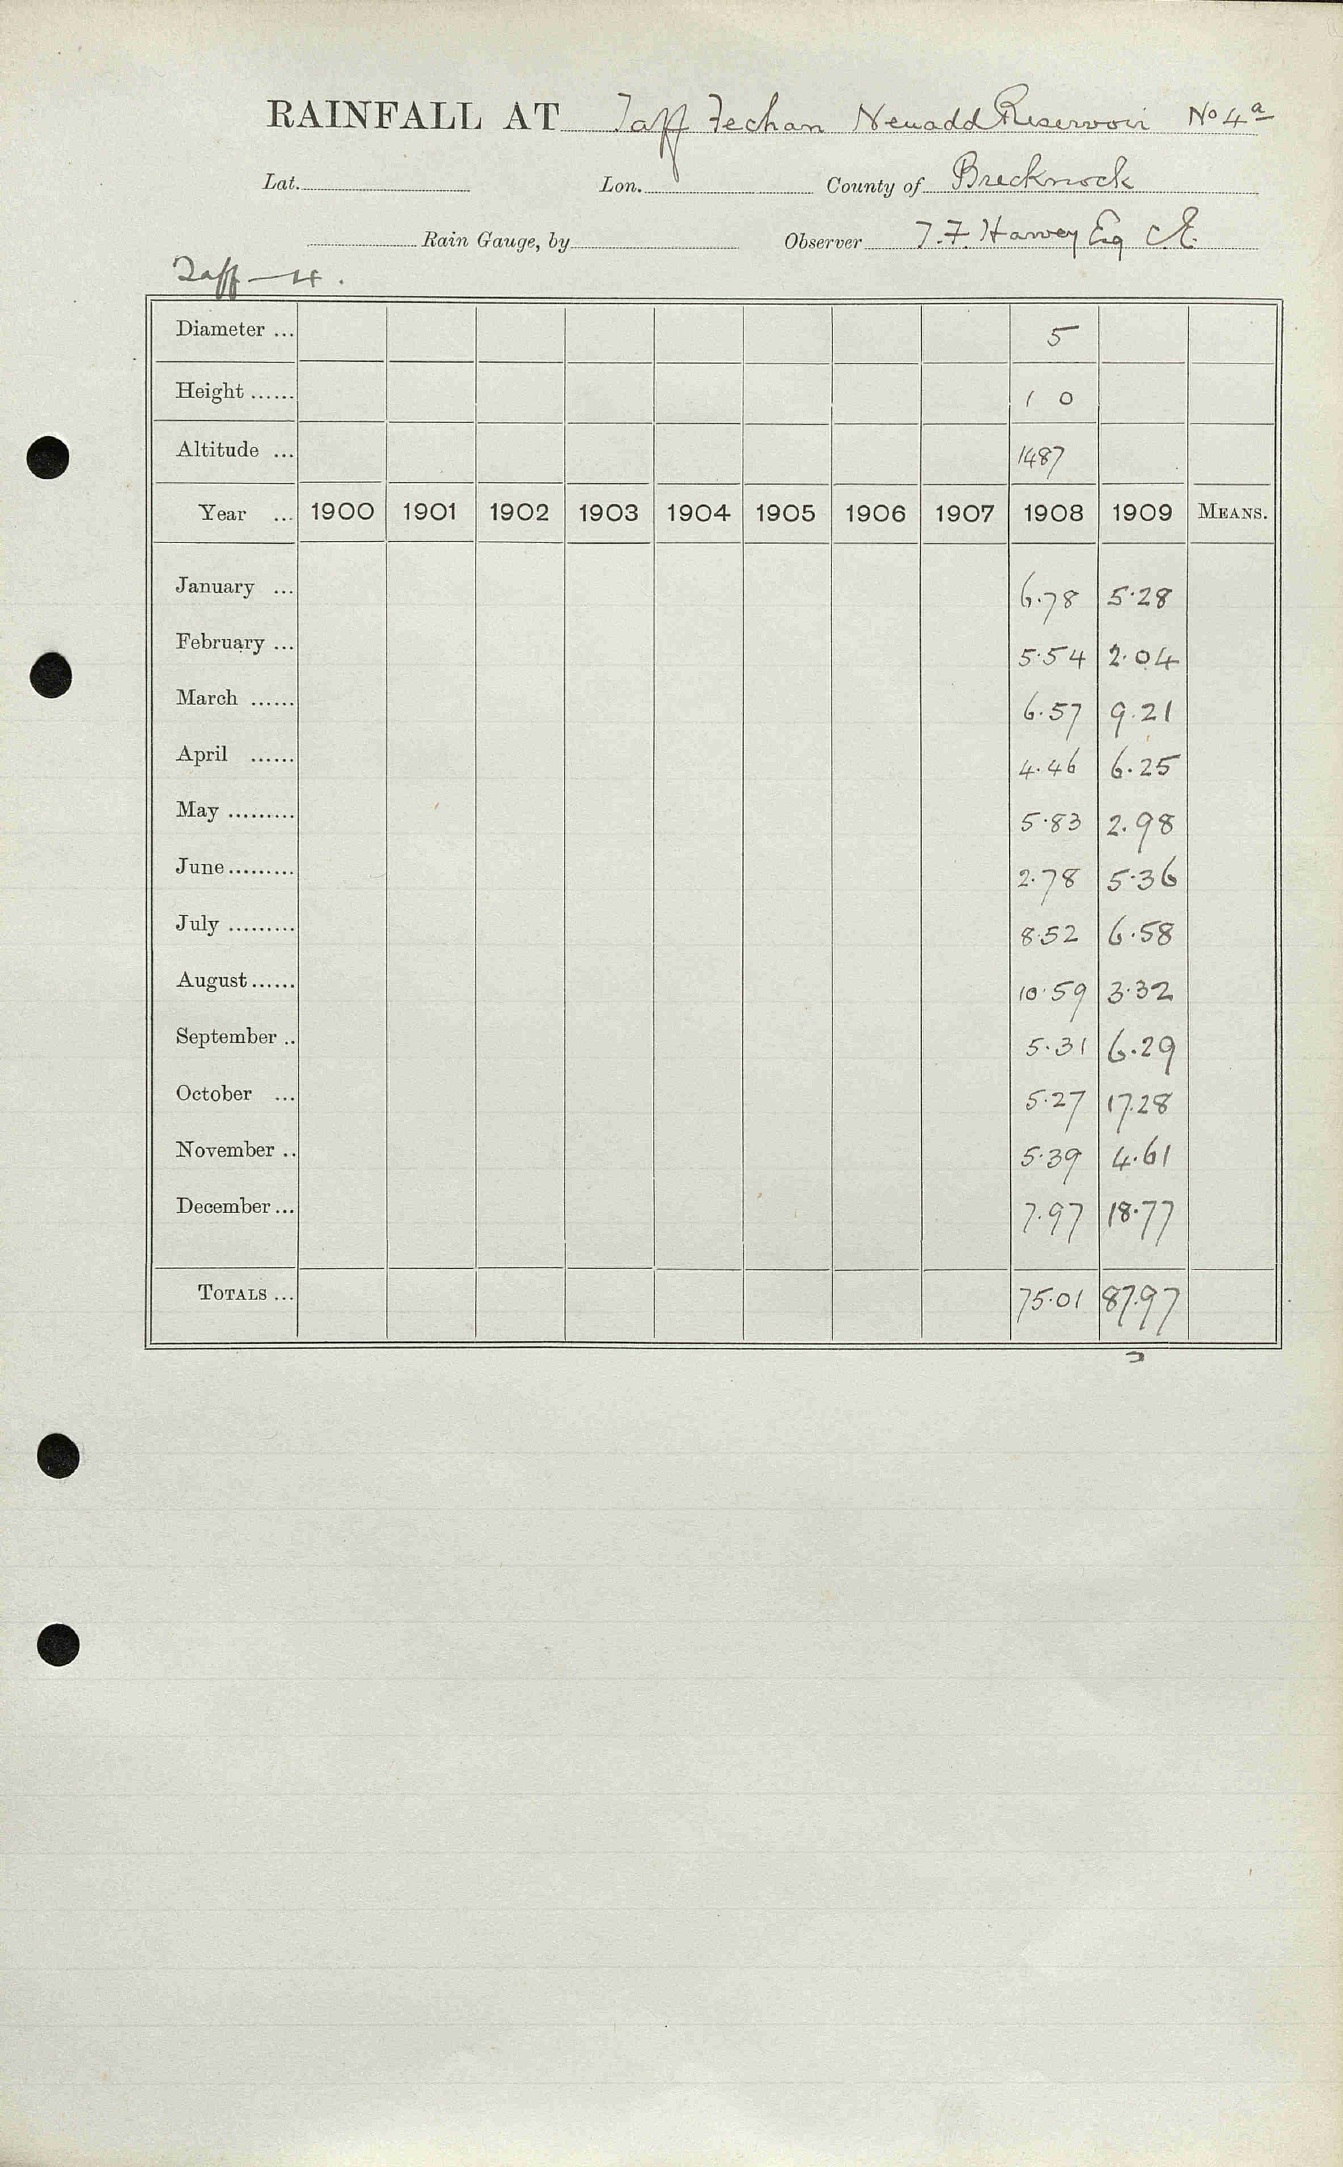 RAINFALL AT Taff Fechan Neuadd Reservoir No 4a
Lat. Lon. County of Brecknock
Rain Gauge, by Observer T. F. Harvey Esq C.E.
Taff — 4.
Diameter ... 5
Height ...... 1 0
Altitude ... 1487
Year ... 1900 1901 1902 1903 1904 1905 1906 1907 1908 1909 MEANS.
January ... 6.78 5.28
February ... 5.54 2.04
March ...... 6.57 9.21
April ...... 4.46 6.25
May ......... 5.83 2.98
June ......... 2.78 5.36
July ......... 8.52 6.58
August ...... 10.59 3.32
September .. 5.31 6.29
October ... 5.27 17.28
November .. 5.39 4.61
December ... 7.97 18.77
TOTALS ... 75.01 87.97